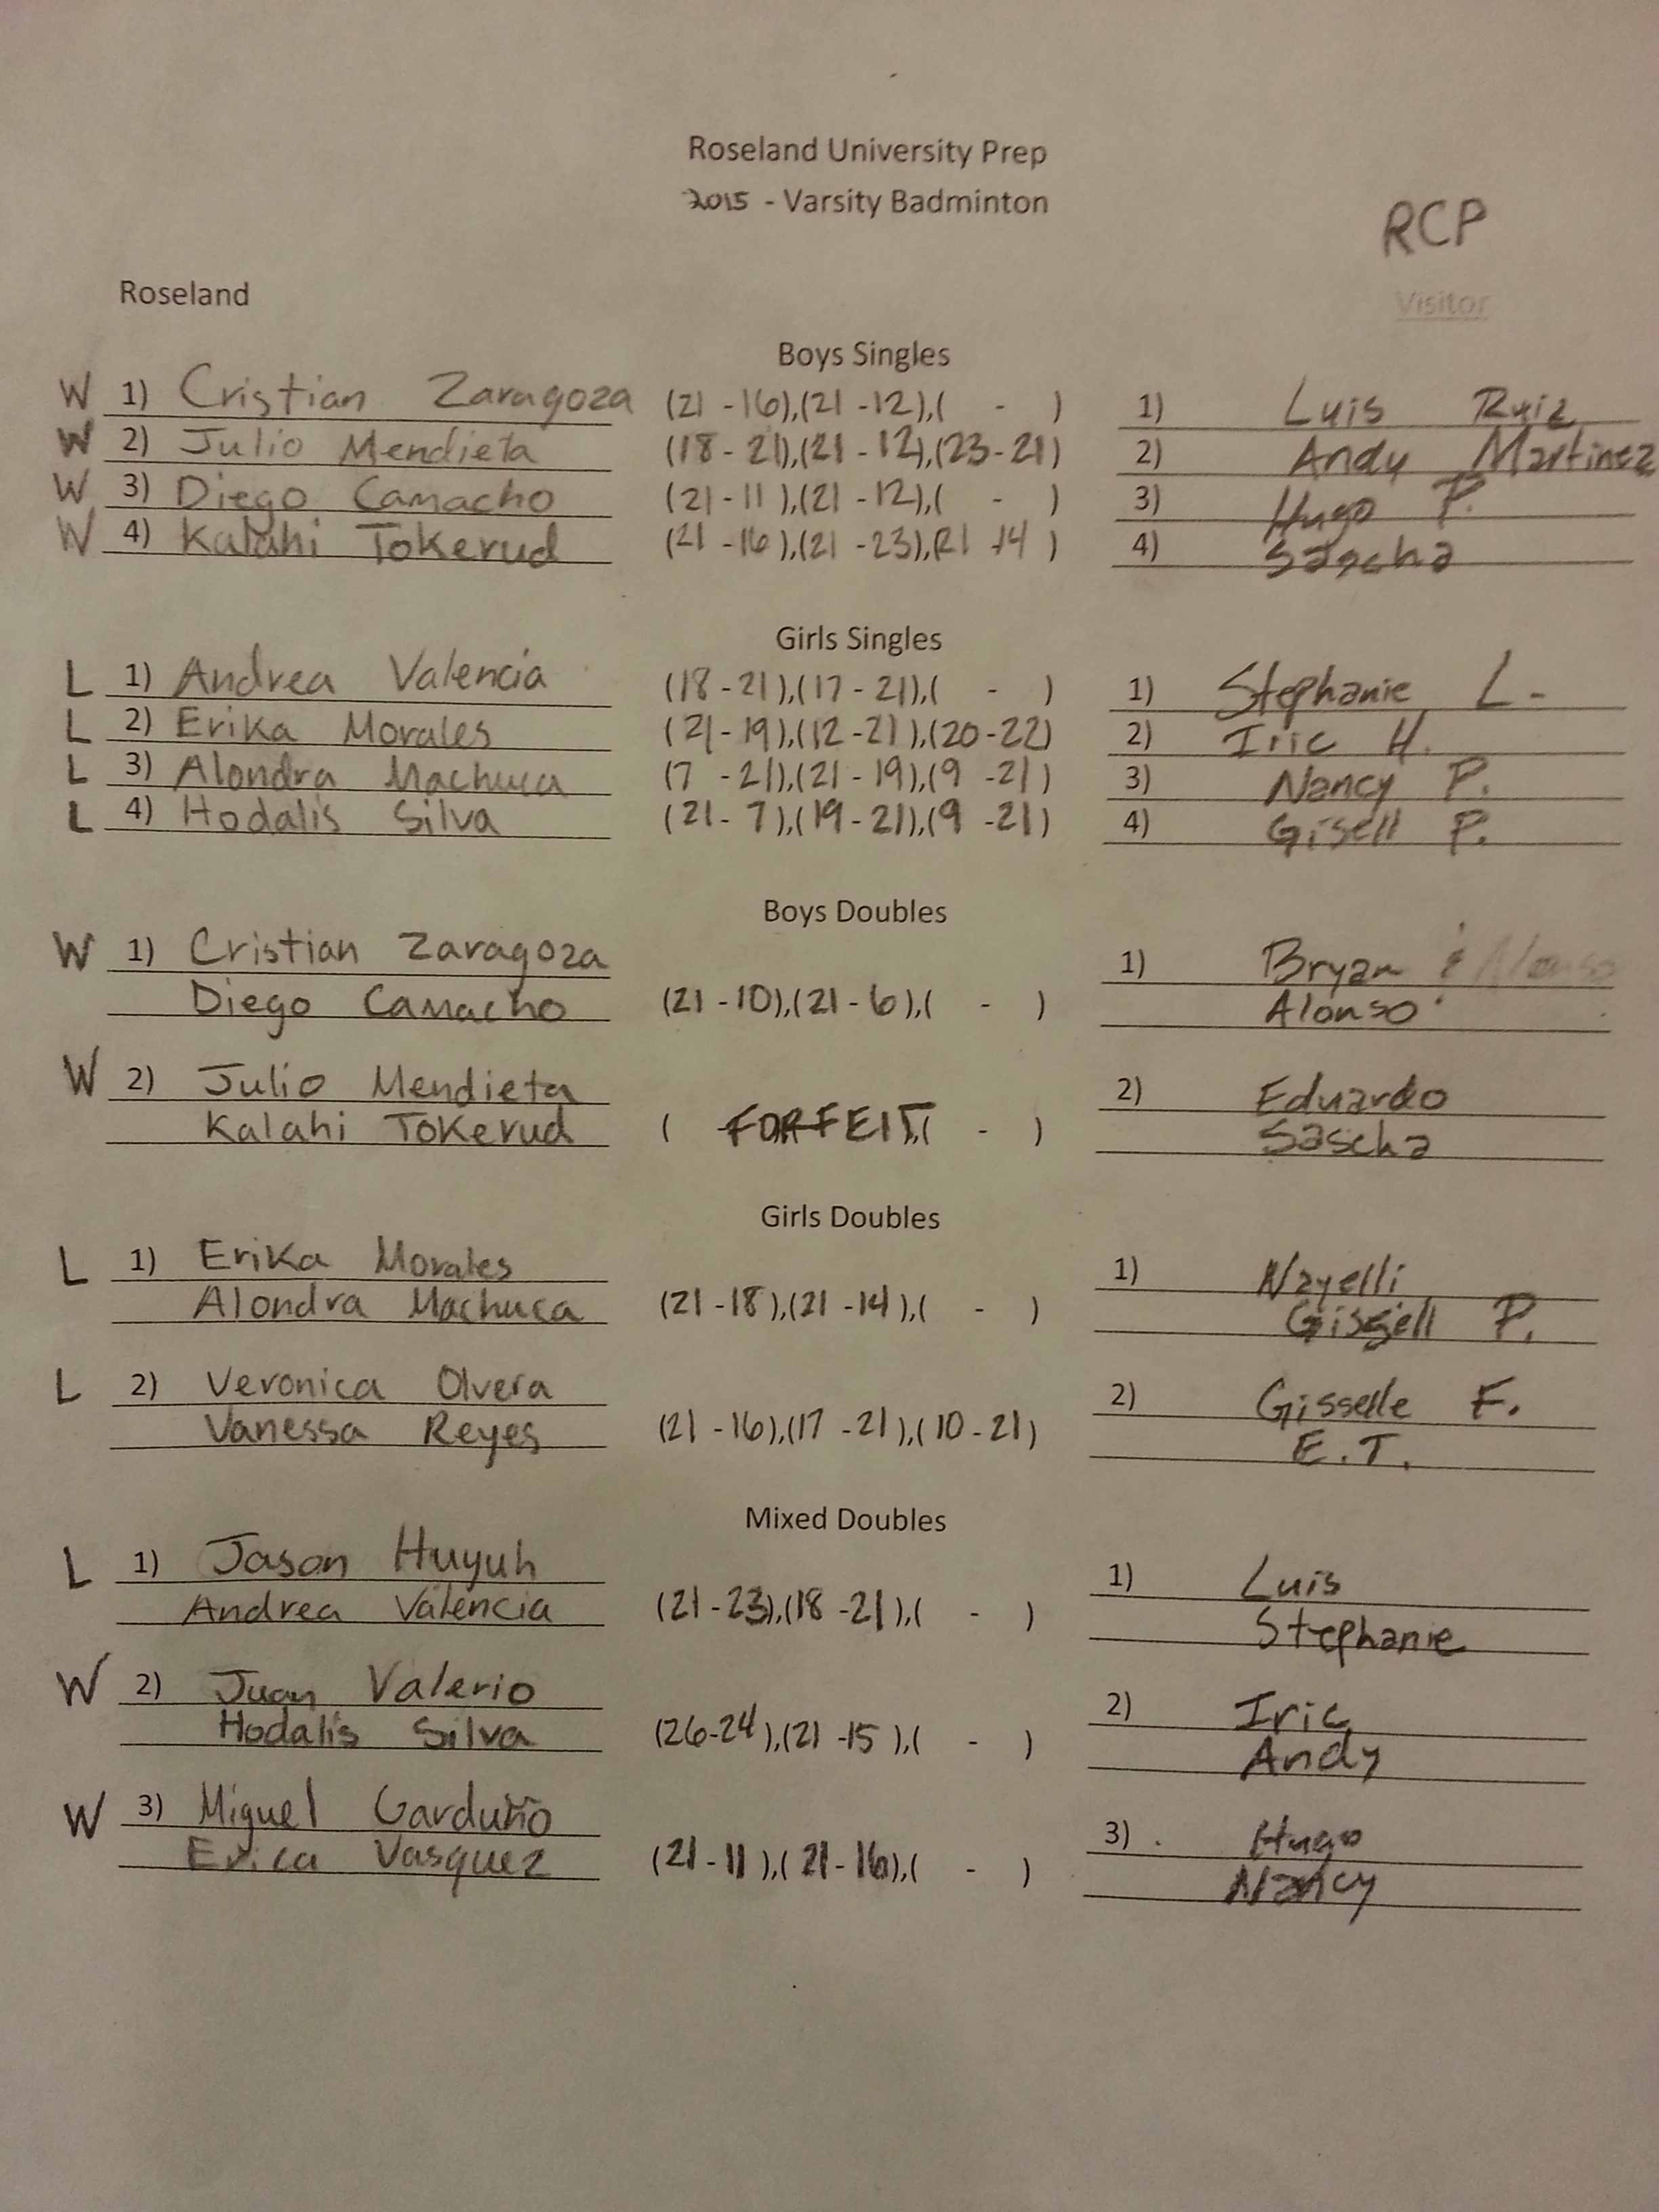 Roseland University Prep
2015 - Varsity Badminton
RCP
Roseland
Visitor
Boys Singles
W 1) Cristian Zaragoza (21 - 16),(21 - 12),( - ) 1) Luis Ruiz
W 2) Julio Mendieta (18 - 21),(21 - 12),(23 - 21) 2) Andy Martinez
W 3) Diego Camacho (21 - 11),(21 - 12),( - ) 3) Hugo P.
W 4) Kalahi Tokerud (21 - 16),(21 - 23),(21 - 14) 4) Sascha
Girls Singles
L 1) Andrea Valencia (18 - 21),(17 - 21),( - ) 1) Stephanie L-
L 2) Erika Morales (21 - 19),(12 - 21),(20 - 22) 2) Iric H.
L 3) Alondra Machuca (7 - 21),(21 - 19),(9 - 21) 3) Nancy P.
L 4) Hodalis Silva (21 - 7),(19 - 21),(9 - 21) 4) Gisell P.
Boys Doubles
W 1) Cristian Zaragoza 1) Bryan & Alonso
Diego Camacho (21 - 10),(21 - 6),( - ) Alonso
W 2) Julio Mendieta 2) Eduardo
Kalahi Tokerud ( FORFEIT,( - ) Sascha
Girls Doubles
L 1) Erika Morales 1) Nayelli
Alondra Machuca (21 - 18),(21 - 14),( - ) Gissell P.
L 2) Veronica Olvera 2) Gisselle F.
Vanessa Reyes (21 - 16),(17 - 21),(10 - 21) E.T.
Mixed Doubles
L 1) Jason Huyuh 1) Luis
Andrea Valencia (21 - 23),(18 - 21),( - ) Stephanie
W 2) Juan Valerio 2) Iric
Hodalis Silva (26 - 24),(21 - 15),( - ) Andy
W 3) Miguel Garduño 3) Hugo
Erica Vasquez (21 - 11),(21 - 16),( - ) Nancy